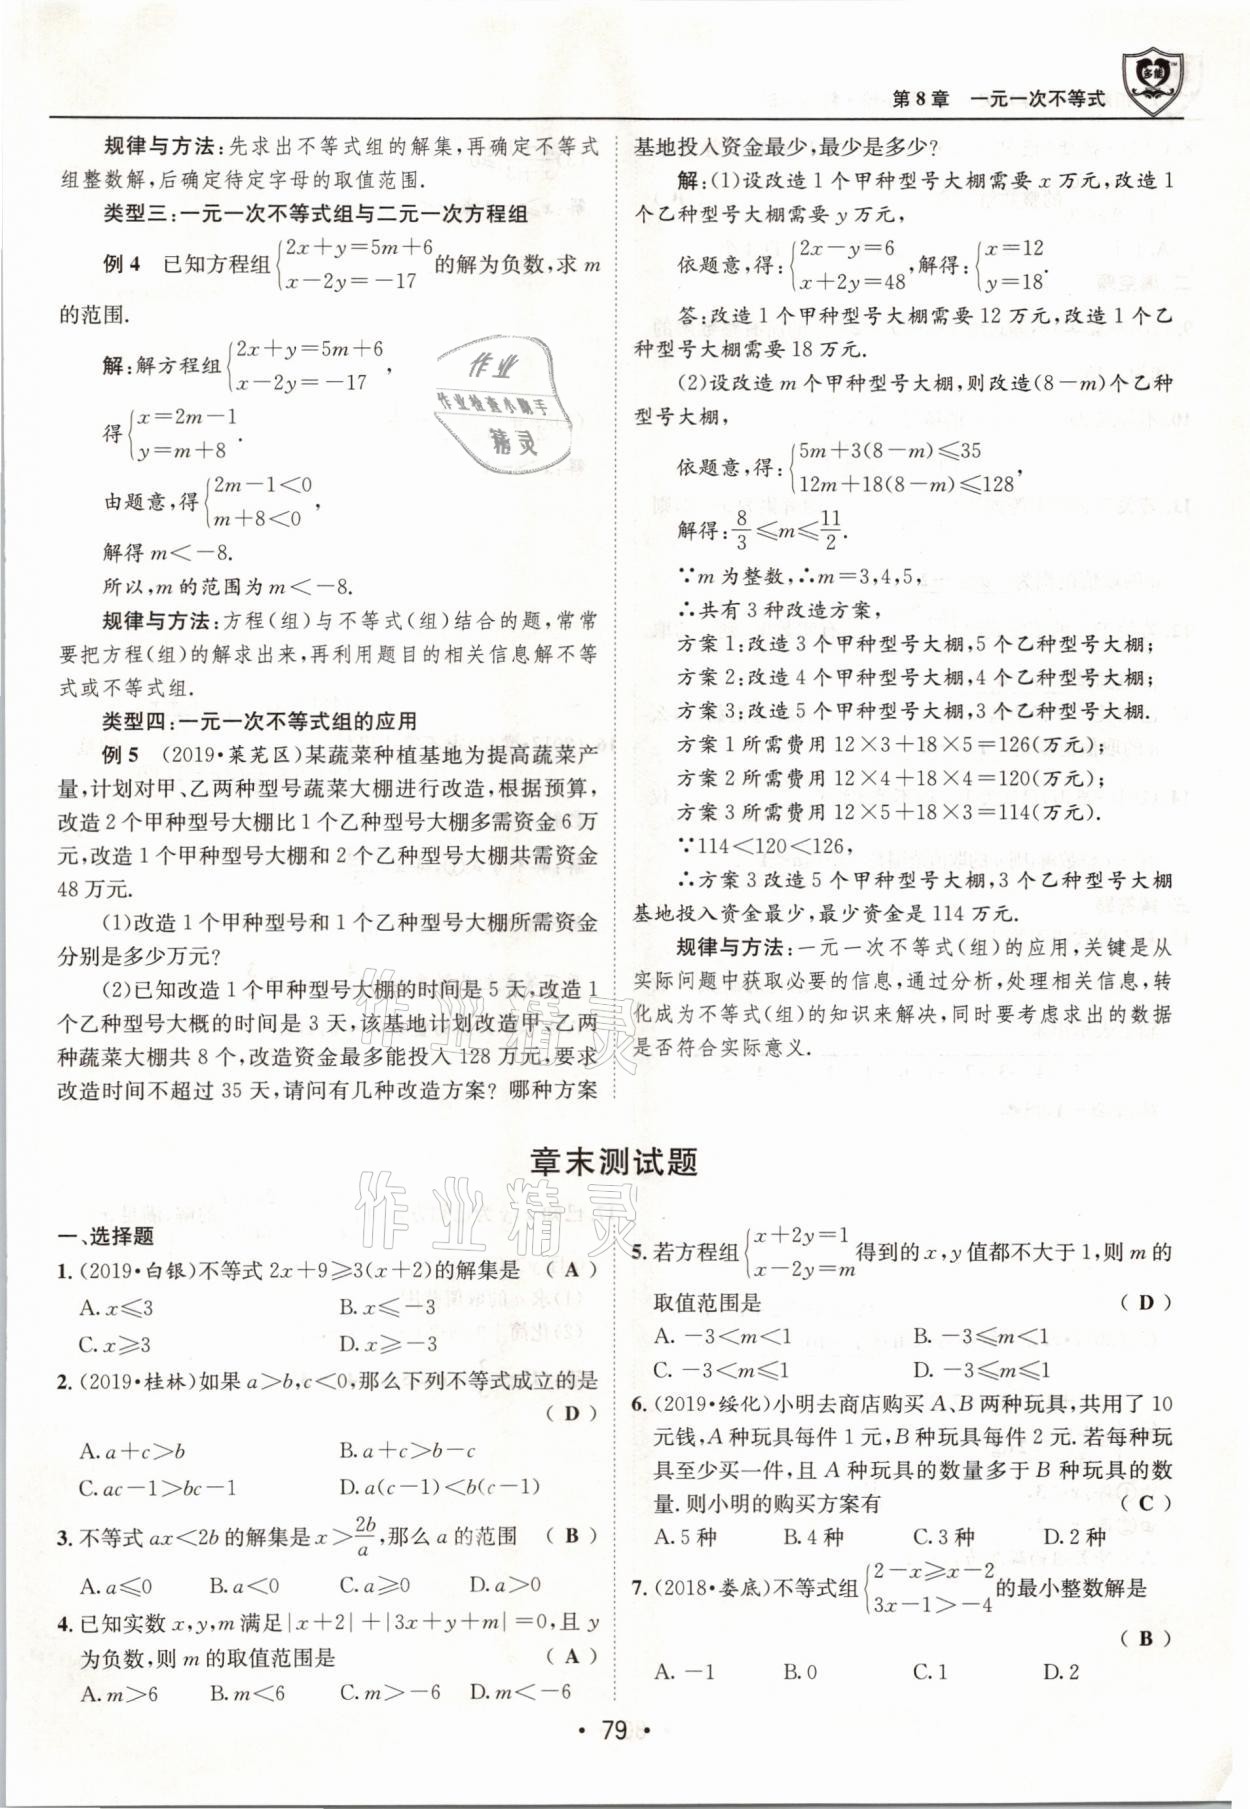 第8章 一元一次不等式
多能
规律与方法:先求出不等式组的解集,再确定不等式
组整数解,后确定待定字母的取值范围.
类型三:一元一次不等式组与二元一次方程组
例4 已知方程组{2x+y=5m+6
x-2y=-17 的解为负数,求m
的范围.
解:解方程组{2x+y=5m+6
x-2y=-17,
得{x=2m-1
y=m+8.
由题意,得{2m-1<0
m+8<0,
解得m<-8.
所以,m的范围为m<-8.
规律与方法:方程(组)与不等式(组)结合的题,常常
要把方程(组)的解求出来,再利用题目的相关信息解不等
式或不等式组.
类型四:一元一次不等式组的应用
例5 (2019·莱芜区)某蔬菜种植基地为提高蔬菜产
量,计划对甲、乙两种型号蔬菜大棚进行改造,根据预算,
改造2个甲种型号大棚比1个乙种型号大棚多需资金6万
元,改造1个甲种型号大棚和2个乙种型号大棚共需资金
48万元.
(1)改造1个甲种型号和1个乙种型号大棚所需资金
分别是多少万元?
(2)已知改造1个甲种型号大棚的时间是5天,改造1
个乙种型号大概的时间是3天,该基地计划改造甲、乙两
种蔬菜大棚共8个,改造资金最多能投入128万元,要求
改造时间不超过35天,请问有几种改造方案?哪种方案
基地投入资金最少,最少是多少?
解:(1)设改造1个甲种型号大棚需要x万元,改造1
个乙种型号大棚需要y万元,
依题意,得:{2x-y=6
x+2y=48,解得:{x=12
y=18.
答:改造1个甲种型号大棚需要12万元,改造1个乙
种型号大棚需要18万元.
(2)设改造m个甲种型号大棚,则改造(8-m)个乙种
型号大棚,
依题意,得:{5m+3(8-m)⩽35
12m+18(8-m)⩽128,
解得:8/3⩽m⩽11/2.
∵m为整数,∴m=3,4,5,
∴共有3种改造方案,
方案1:改造3个甲种型号大棚,5个乙种型号大棚;
方案2:改造4个甲种型号大棚,4个乙种型号大棚;
方案3:改造5个甲种型号大棚,3个乙种型号大棚.
方案1所需费用12×3+18×5=126(万元);
方案2所需费用12×4+18×4=120(万元);
方案3所需费用12×5+18×3=114(万元).
∵114<120<126,
∴方案3改造5个甲种型号大棚,3个乙种型号大棚
基地投入资金最少,最少资金是114万元.
规律与方法:一元一次不等式(组)的应用,关键是从
实际问题中获取必要的信息,通过分析,处理相关信息,转
化成为不等式(组)的知识来解决,同时要考虑求出的数据
是否符合实际意义.
作业
作业检查小助手
精灵
作业精灵
章末测试题
作业精灵
一、选择题
1.(2019·白银)不等式2x+9⩾3(x+2)的解集是 (A)
A.x⩽3 B.x⩽-3
C.x⩾3 D.x⩾-3
2.(2019·桂林)如果a>b,c<0,那么下列不等式成立的是
(D)
A.a+c>b B.a+c>b-c
C.ac-1>bc-1 D.a(c-1)<b(c-1)
3.不等式ax<2b的解集是x>2b/a,那么a的范围 (B)
A.a⩽0 B.a<0 C.a⩾0 D.a>0
4.已知实数x,y,m满足|x+2|+|3x+y+m|=0,且y
为负数,则m的取值范围是 (A)
A.m>6 B.m<6 C.m>-6 D.m<-6
5.若方程组{x+2y=1
x-2y=m 得到的x,y值都不大于1,则m的
取值范围是 (D)
A.-3<m<1 B.-3⩽m<1
C.-3<m⩽1 D.-3⩽m⩽1
6.(2019·绥化)小明去商店购买A、B两种玩具,共用了10
元钱,A种玩具每件1元,B种玩具每件2元.若每种玩
具至少买一件,且A种玩具的数量多于B种玩具的数
量.则小明的购买方案有 (C)
A.5种 B.4种 C.3种 D.2种
7.(2018·娄底)不等式组{2-x⩾x-2
3x-1>-4 的最小整数解是
(B)
A.-1 B.0 C.1 D.2
·79·